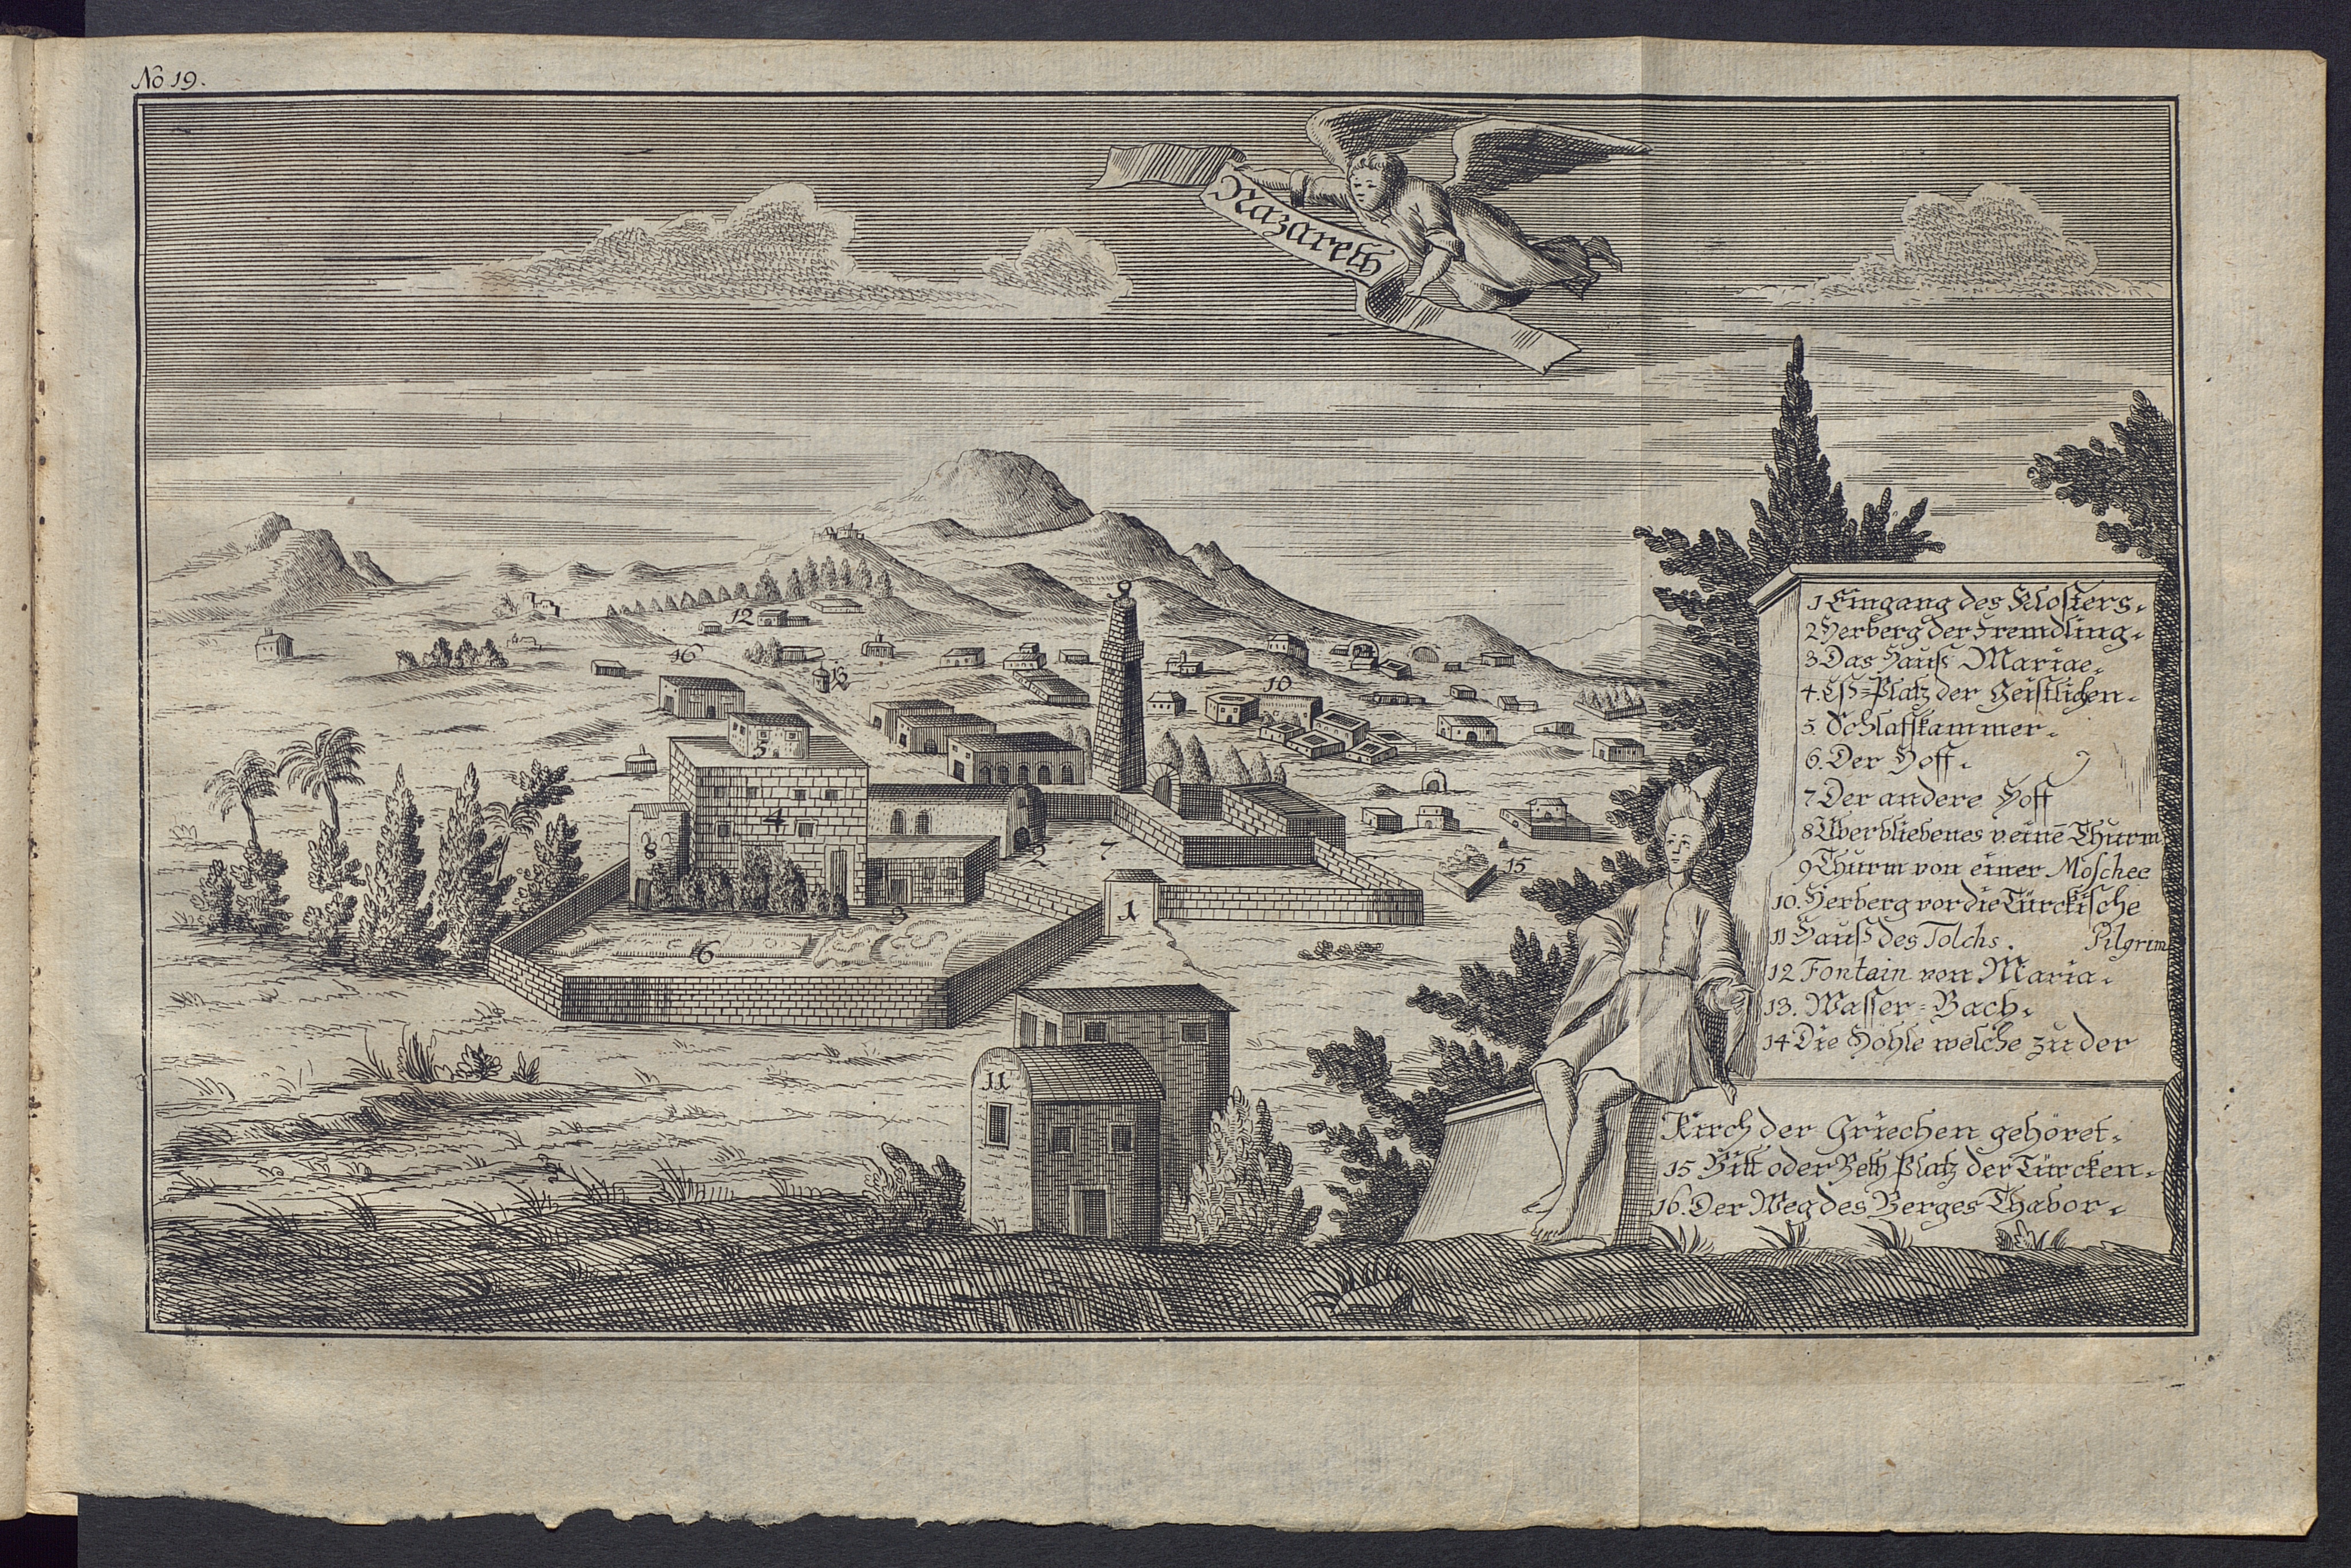 No 19.
Nazareth
1 Eingang des Klosters.
2 Herberg der Fremdling.
3 Das Hauß Mariae.
4. Eß=Platz der Geistlichen.
5. Schlaffkammer.
6. Der Hoff.
7 Der andere Hoff
8 Überbliebenes v. einē Thurm
9 Thurm von einer Moschee
10. Herberg vor die Türckische
Pilgrim
11 Hauß des Tolchs.
12 Fontain von Maria.
13. Wasser=Bach.
14 Die Höhle welche zu der
Kirch der Griechen gehöret.
15 Bitt oder Beth Platz der Türcken.
16. Der Weg des Berges Thabor.
12
16
13
10
5
4
8
2
7
15
3
1
6
11